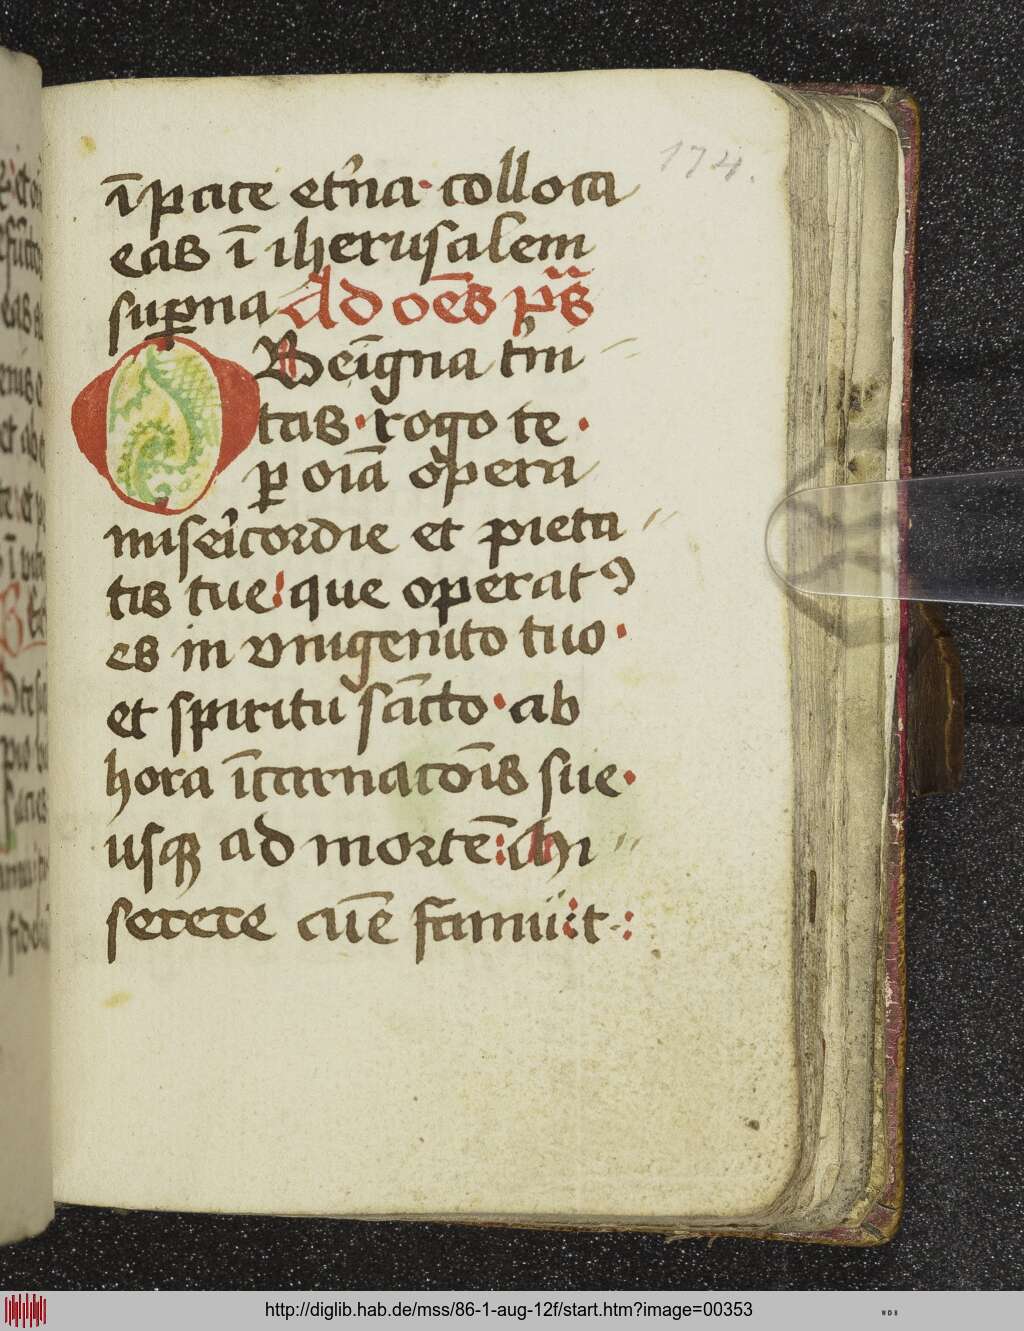 174.
ī pace et'na · colloca
eas ī iherusalem
sup̱na Ad oēs pr̄s
O Beīgna t'ni
tas · rogo te ·
p̱ oīa opera
mis'icordie et pieta
tis tue : que operatꝰ
es in vnigenito tuo ·
et spiritu sācto · ab
hora īcarnacōis sue ·
usqꝫ ad mortē : Mi
serere aīe famuli : t · :
http://diglib.hab.de/mss/86-1-aug-12f/start.htm?image=00353